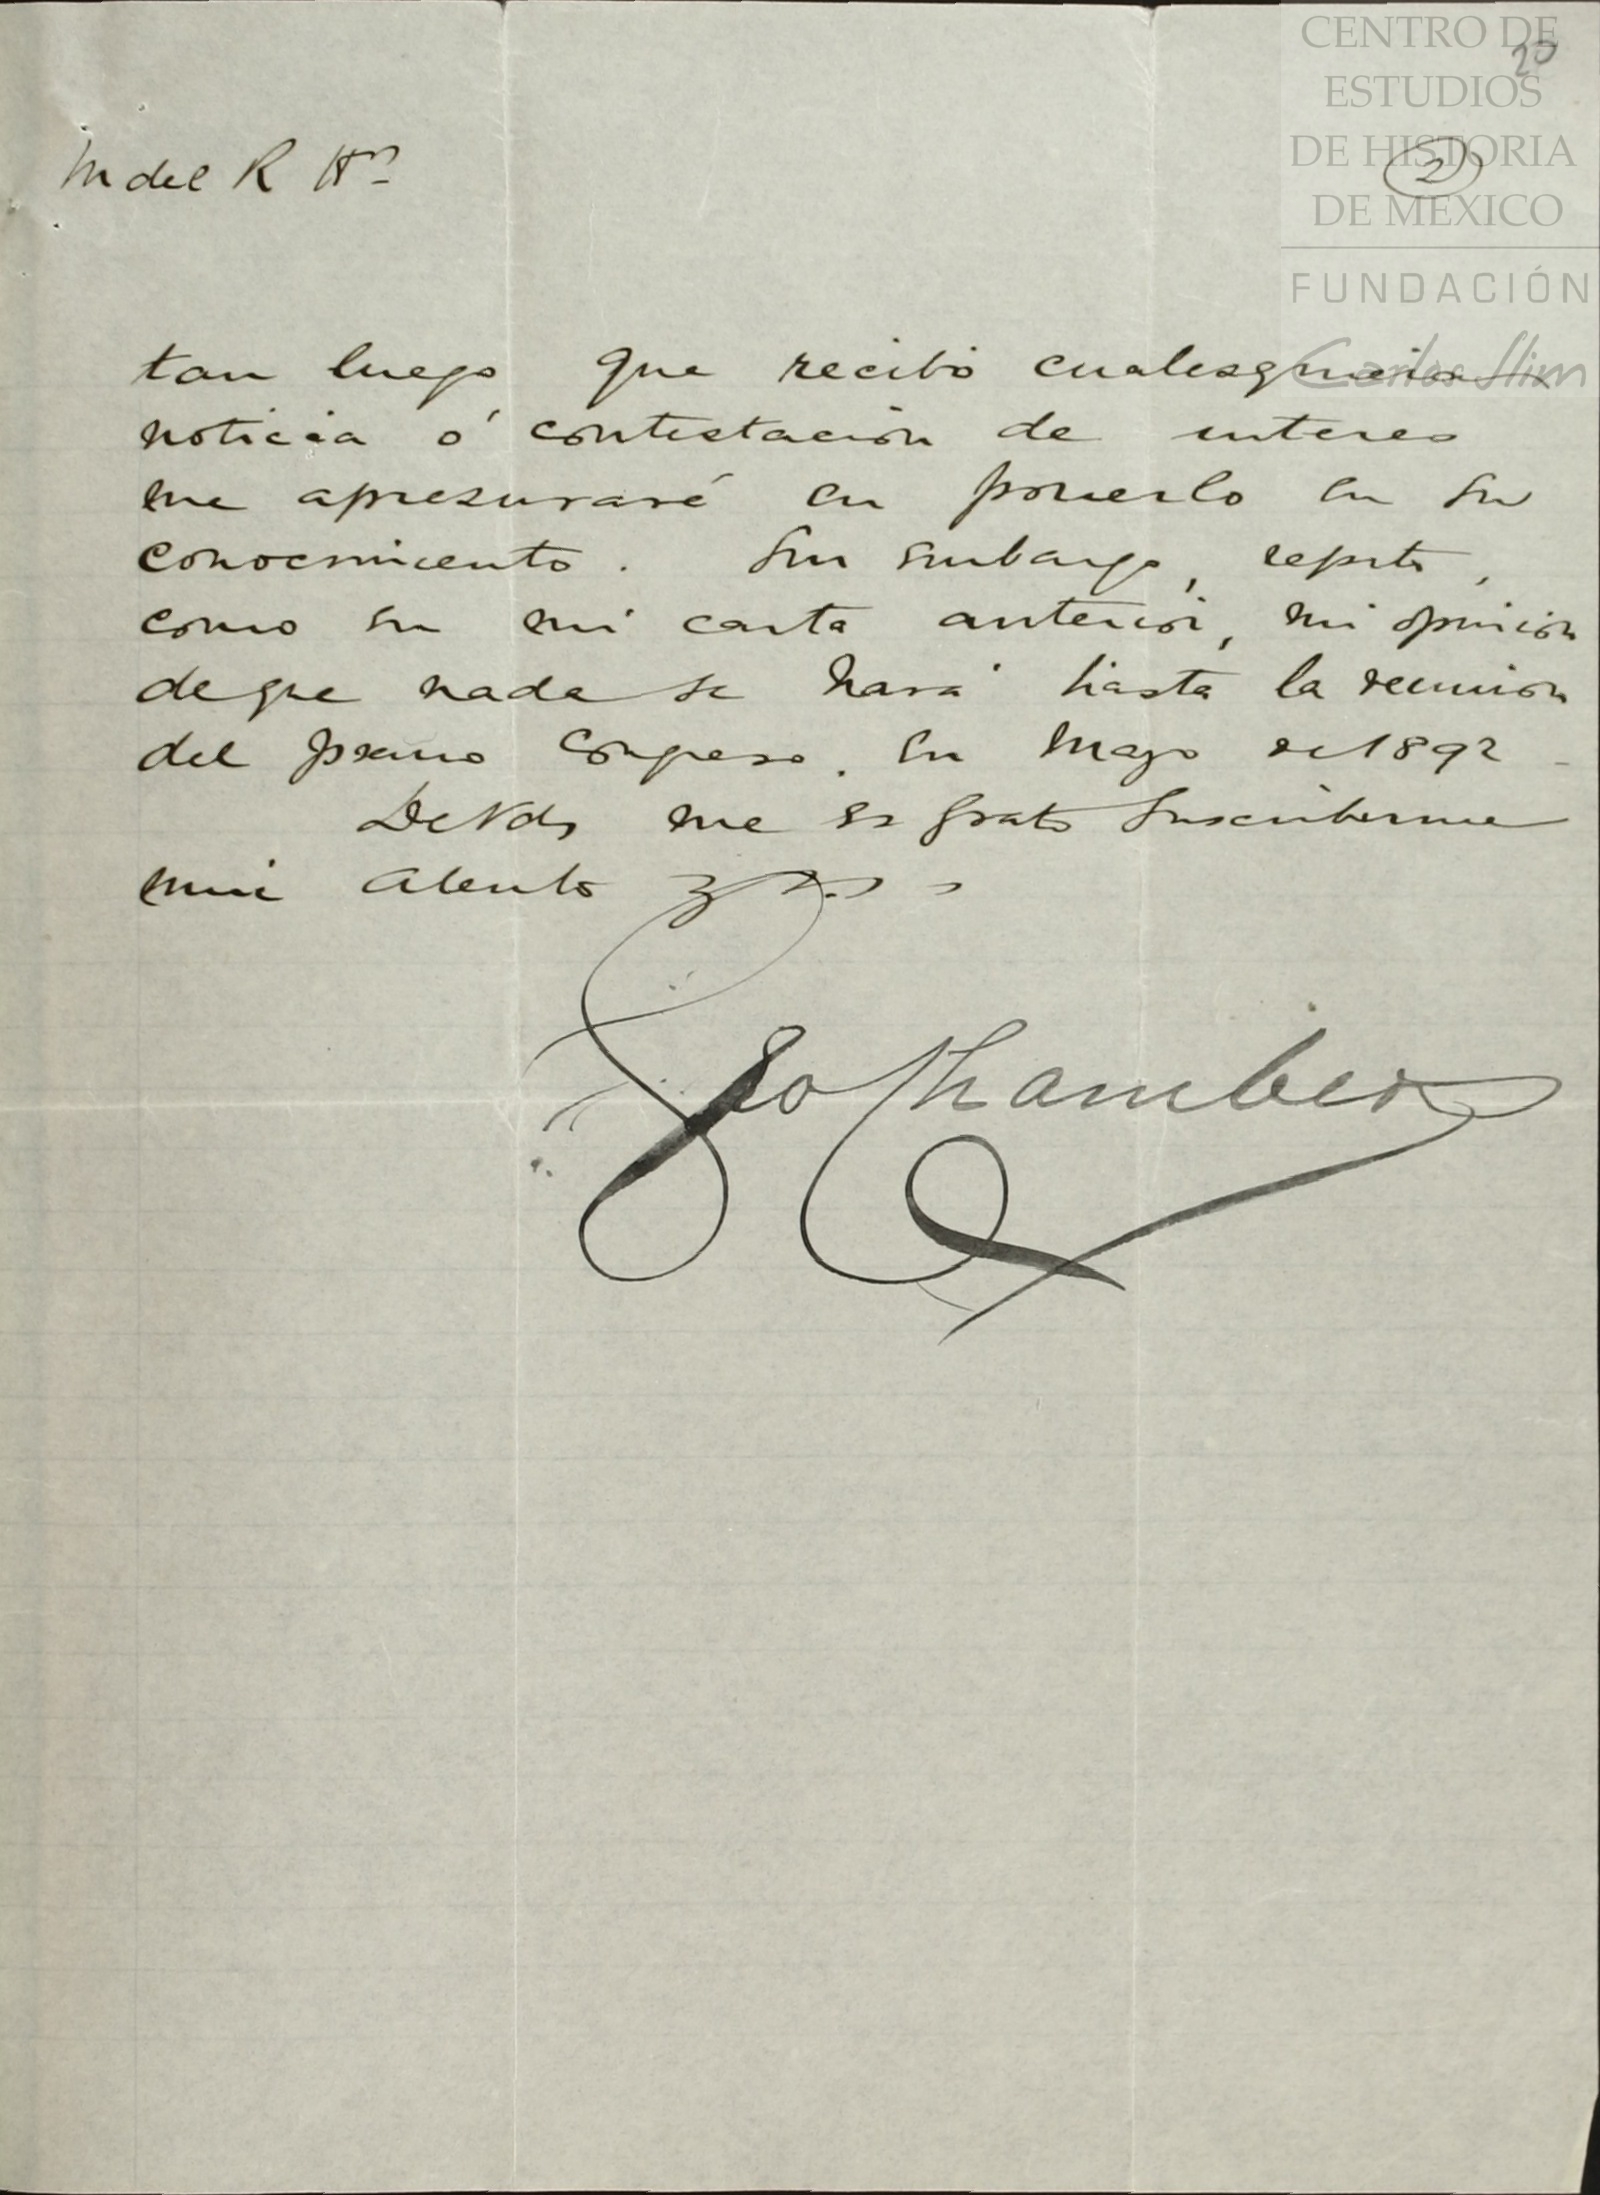 CENTRO DE
ESTUDIOS
DE HISTORIA
DE MÉXICO
FUNDACIÓN
Carlos Slim
20
2
M del R Hno
tan luego que recibo cualesquiera
noticia ó contestación de interes
me apresuraré en ponerlo en su
conocimiento. Sin embargo, repito,
como en mi carta anterior, mi opinión
de que nada se hará hasta la reunión
del pxmo Congreso. en Mayo de 1892
De Vds me es grato suscribirme
mui atento y
Geo Chambers